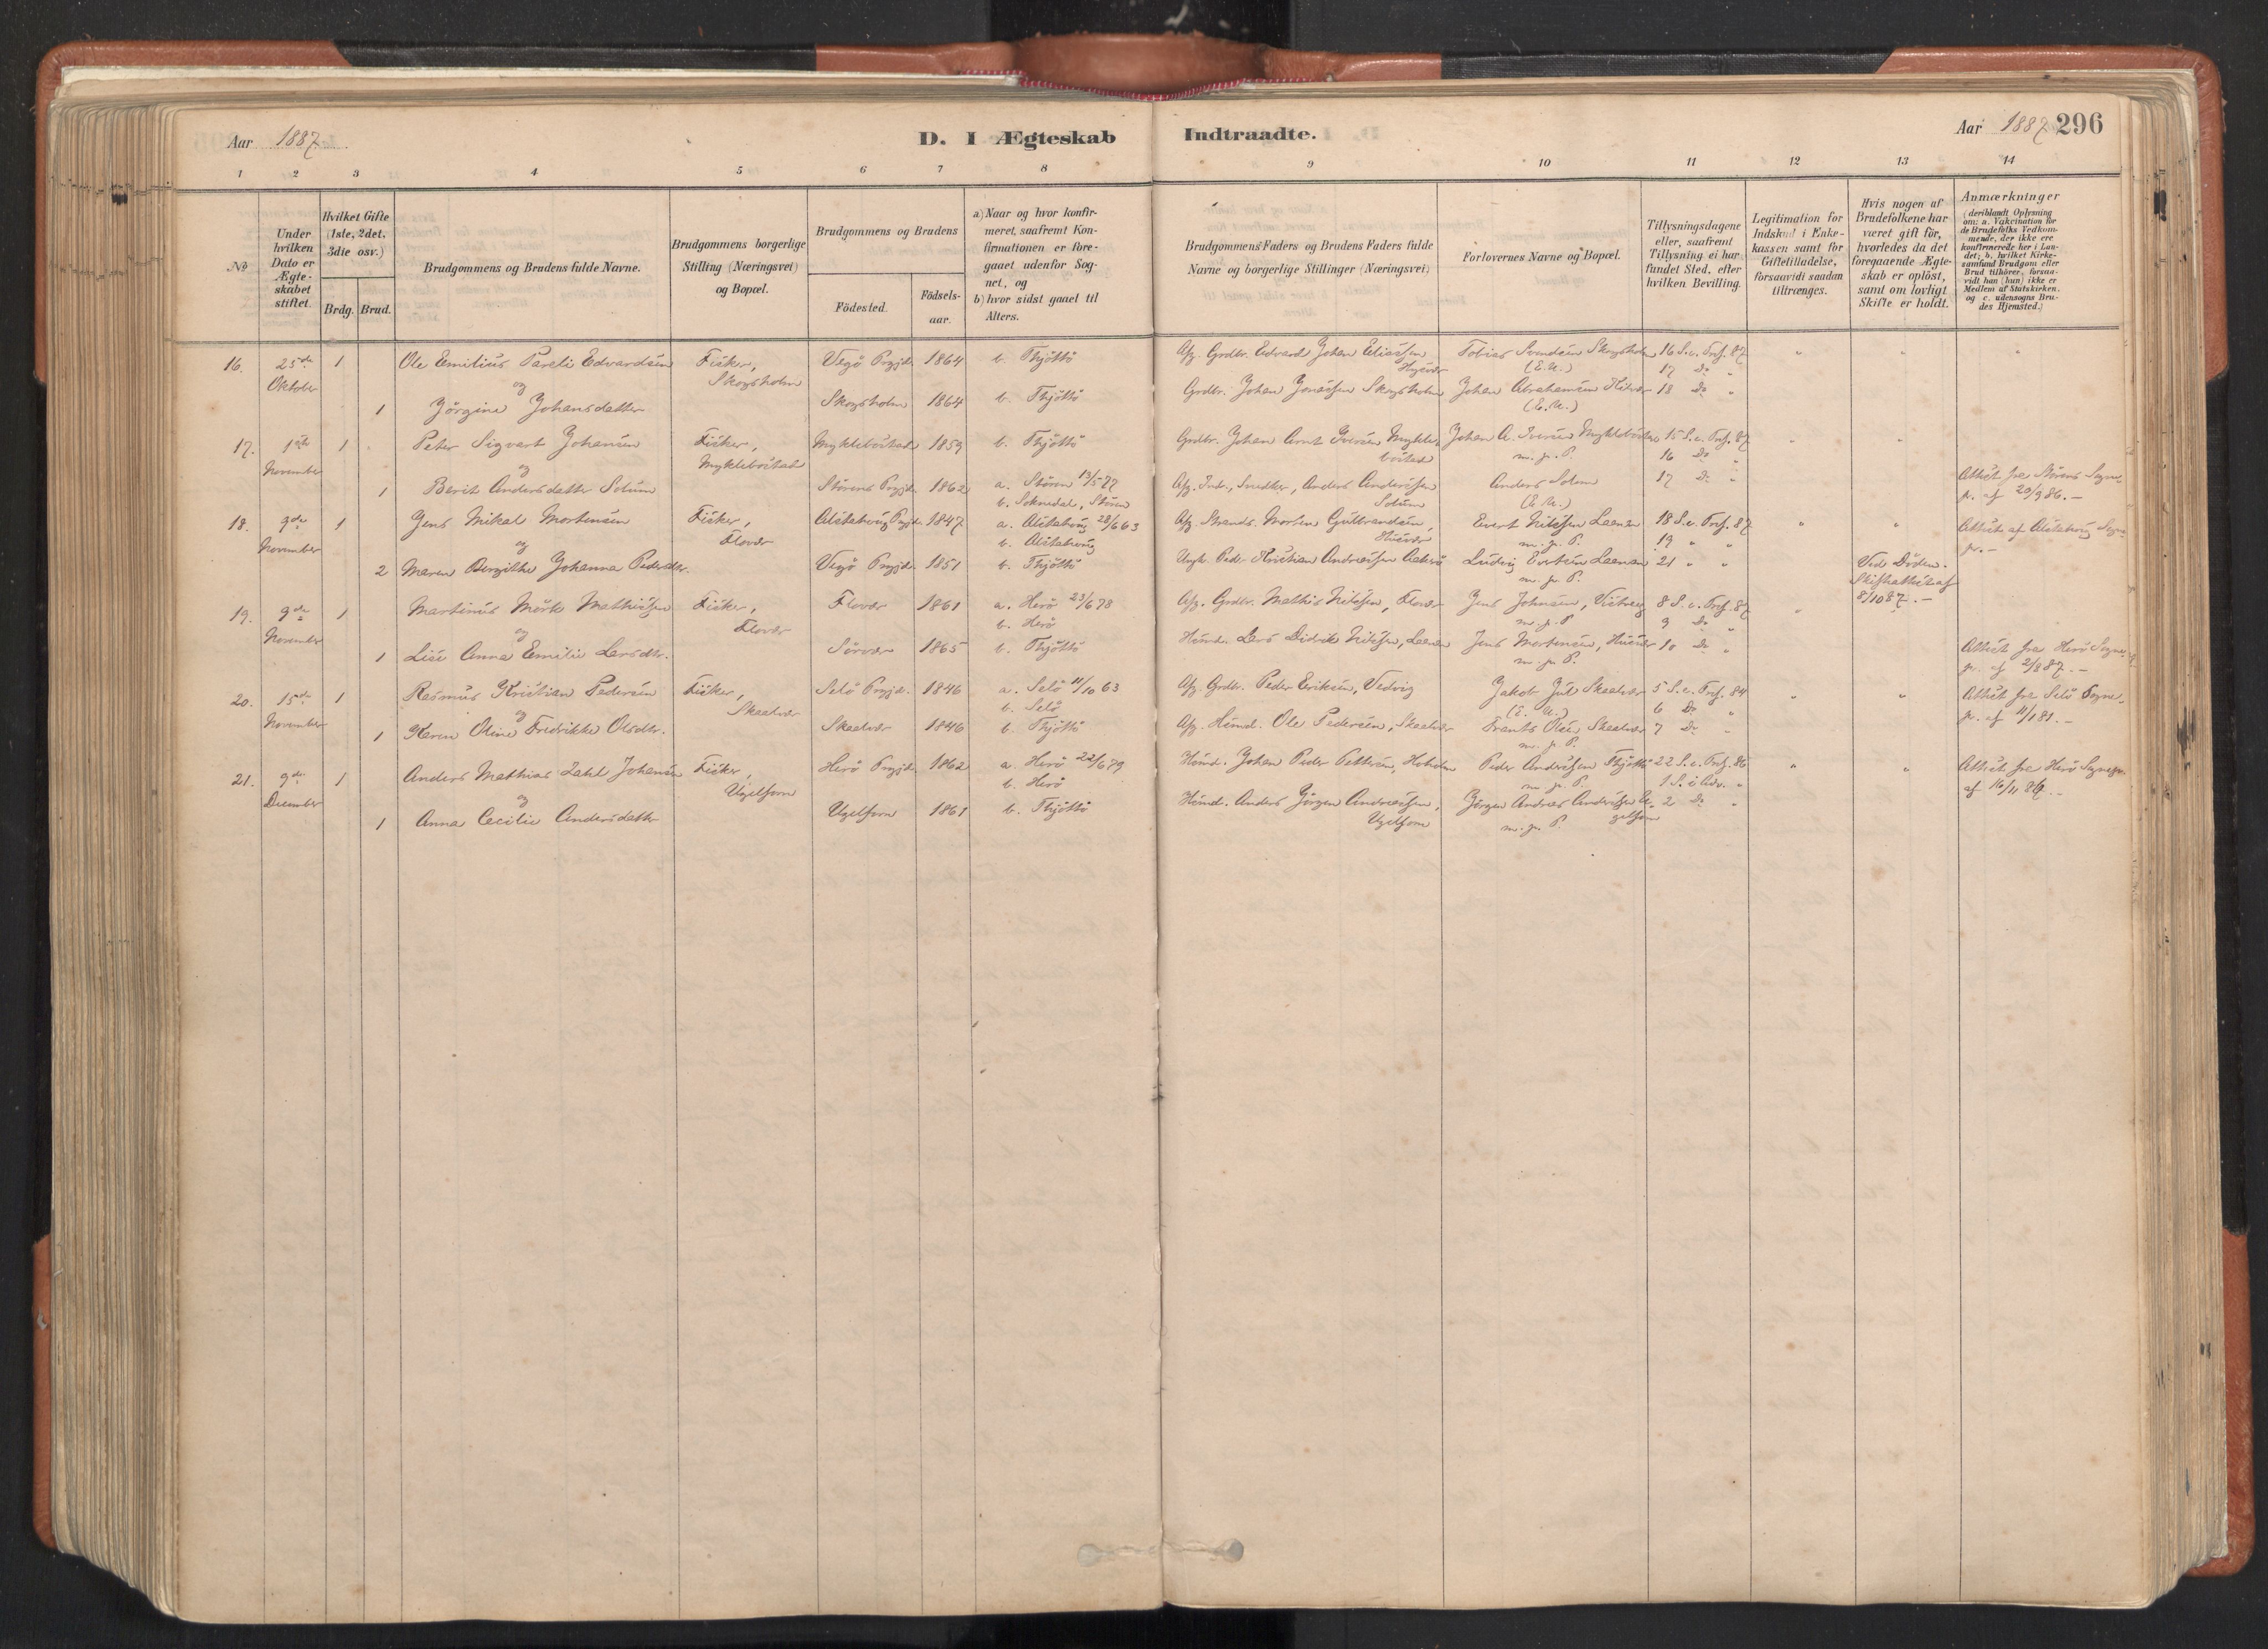 Aar 1887.
D. I Ægteskab
Indtraadte.
Aar 1887 296
1 2 3 4 5 6 7 8 9 10 11 12 13 14
No
Under hvilken Dato er Ægte- skabet stiftet.
Hvilket Gifte (1ste, 2det, 3die osv.)
Brdg. Brud.
Brudgommens og Brudens fulde Navne.
Brudgommens borgerlige Stilling (Næringsvei) og Bopæl.
Brudgommens og Brudens
Födested.
Födsels- aar.
a) Naar og hvor konfir- meret, saafremt Kon- firmationen er fore- gaaet udenfor Sog- net, og
b) hvor sidst gaaet til Alters.
Brudgommens Faders og Brudens Faders fulde Navne og borgerlige Stillinger (Næringsvei)
Forlovernes Navne og Bopæl.
Tillysningsdagene eller, saafremt Tillysning ei har fundet Sted, efter hvilken Bevilling.
Legitimation for Indskud i Enke- kassen samt for Giftetilladelse, forsaavidt saadan tiltrænges.
Hvis nogen af Brudefolkene har været gift för, hvorledes da det foregaaende Ægte- skab er oplöst, samt om lovligt Skifte er holdt.
Anmærkninger (deriblandt Oplysning om: a. Vakcination for de Brudefolks Vedkom- mende, der ikke ere konfirmerede her i Lan- det; b. hvilket Kirke- samfund Brudgom eller Brud tilhörer, forsaa- vidt han (hun) ikke er Medlem af Statskirken, og c. udensogns Bru- des Hjemsted.)
16. 25de 1 Ole Emilius Pareli Edvardsen Fisker, Vegö Prgjd. 1864 b. Thjöttö Afg. Grdbr. Edvard Johan Eliassen Tobias Svendsen Skogsholm 16 S. e. Tref. 87 " " "
Oktober og Skogsholm Hysvær (E. U.) 17 Do "
1 Jörgine Johansdatter Skogsholm 1864 b. Thjöttö Grdbr. Johan Jonassen Skogsholm Johan Abrahamsen Hilvær 18 Do "
(E. U.)
17. 1ste 1 Peter Sigvart Johansen Fisker, Myklebostad 1859 b. Thjöttö Grdbr. Johan Arnt Iversen Mykle- Johan A. Iversen Myklebostad 15 S. e. Tref. 87 " "
November og Myklebostad bostad m. p. P. 16 Do "
1 Berit Andersdatter Solum Störens Prgjd. 1862 a. Stören 13/5 77 Afg. Indr., Snedker, Anders Anderssen Anders Solem 17 Do " Attest fra Störens Sogne-
b. Soknedal, Stören Solum (E. U.) pr. af 20/9 86. -
18. 9de 1 Jens Mikal Mortensen Fisker, Alstahoug Prgjd. 1847 a. Alstahoug 28/6 63 Afg. Strands. Morten Gulbrandsen, Evert Nilssen Laanan 18 S. e. Tref. 87 " " Attest af Alstahoug Sogne-
November og Flovær b. Alstahoug Husvær m. p. P. 19 " " pr. -
2 Maren Bergithe Johanna Pedersdtr. Vegö Prgjd. 1851 b. Thjöttö Ungk. Peder Kristian Andreassen Aakerö Ludvig Evertsen Laanan 21 " " Ved Döden.
m. p. P. Skifteattest af
8/10 87. -
19. 9de 1 Martinus Mörk Mathissen Fisker, Flovær 1861 a. Herö 23/6 78 Afg. Grdbr. Mathis Nilssen, Flovær Jens Johnsen, 8 S. e. Tref. 87 "
November og Flovær b. Herö m. p. P 9 Do "
1 Lise Anna Emilie Larsdtr. Sörvær 1865 b. Thjöttö Husmd. Lars Didrik Nilssen, Laanan Jens Mortensen, Husvær 10 Do " Attest fra Herö Sogne-
m. p. P. pr. af 2/8 87. -
20. 15de 1 Rasmus Kristian Pedersen Fisker, Selö Prgjd. 1846 a. Selö 11/10 63 Afg. Grdbr. Peder Eriksen, Vedvig Jakob Jul Skaalvær 5 S. e. Tref. 84 " " Attest fra Selö Sogne-
November og Skaalvær b. Selö (E. U.) 6 Do " pr. af 11/1 81. -
1 Karen Oline Fredrikke Olsdtr. Skaalvær 1846 b. Thjöttö Afg. Husmd. Ole Pedersen, Skaalvær Frants Olsen Skaalvær 7 Do "
m. p. P.
21. 9de 1 Anders Mathias Zahl Johansen Fisker, Herö Prgjd. 1862 a. Herö 22/6 79 Husmd. Johan Peder Pettersen, Peder Anderssen Thjöttö 22 S. e. Tref. 86 " " Attest fra Herö Sognepr.
December og Ugelforn b. Herö m. p. P. 1 S. i Adv. " af 16/11 86. -
1 Anna Cecilie Andersdatter Ugelforn 1861 b. Thjöttö Husmd. Anders Jörgen Andreassen, Jörgen Andreas Anderssen U- 2 Do "
Ugelforn m. p. P. gelforn